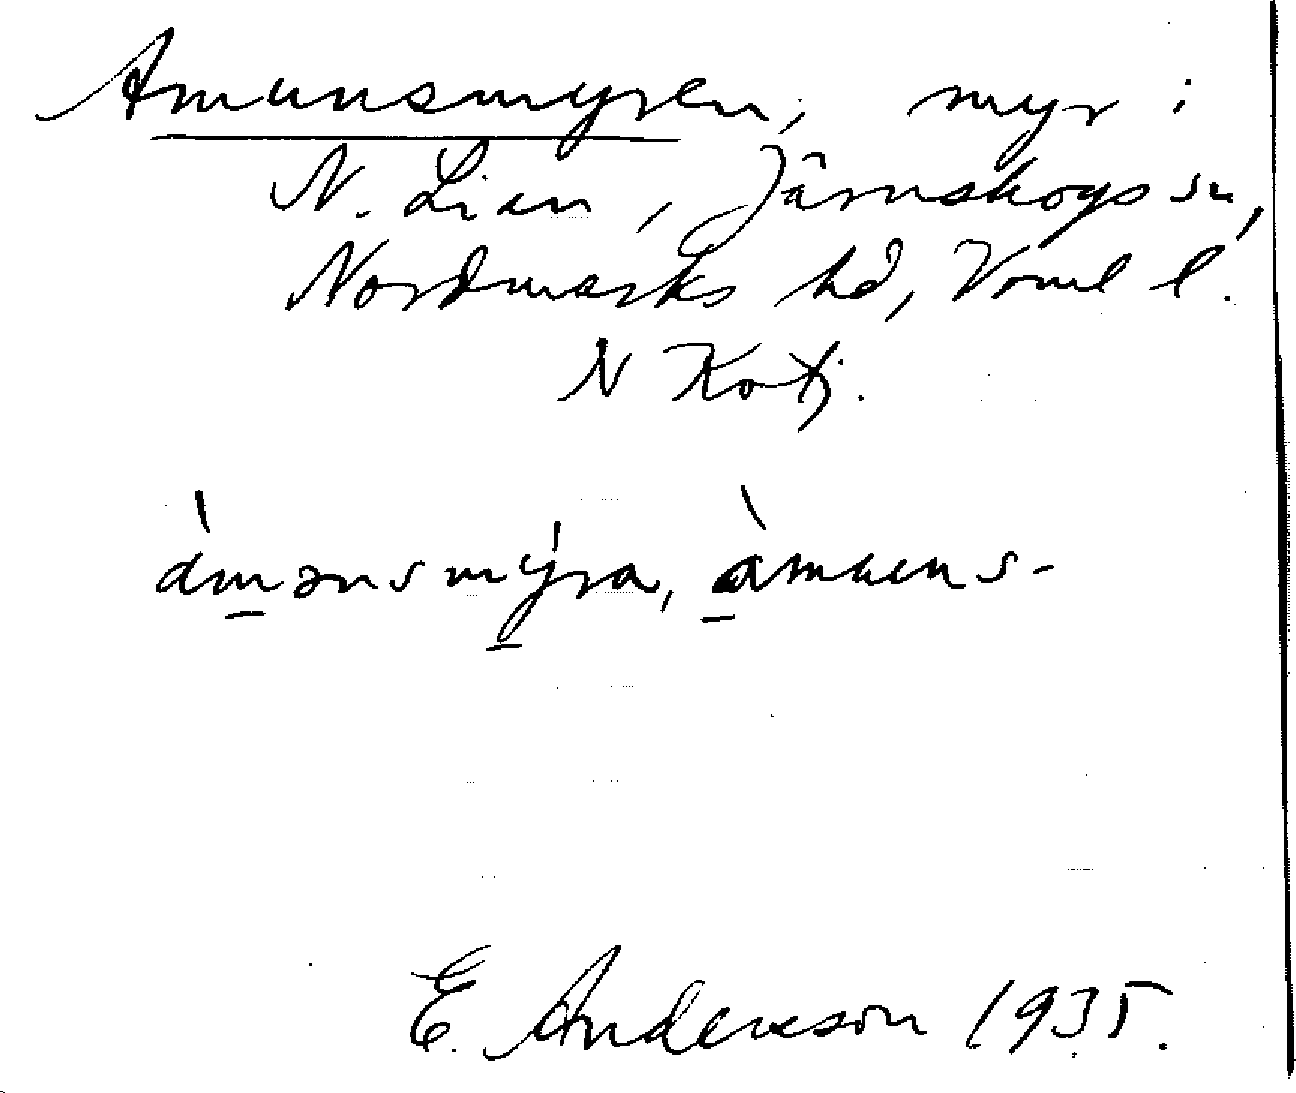 Amunsmyren, myr i
N. Lian, Järnskogs sn,
Nordmarks hd, Vrml l.
N Kotj.
àmənsmy̍ra, àmuns-
E. Andersson 1935.